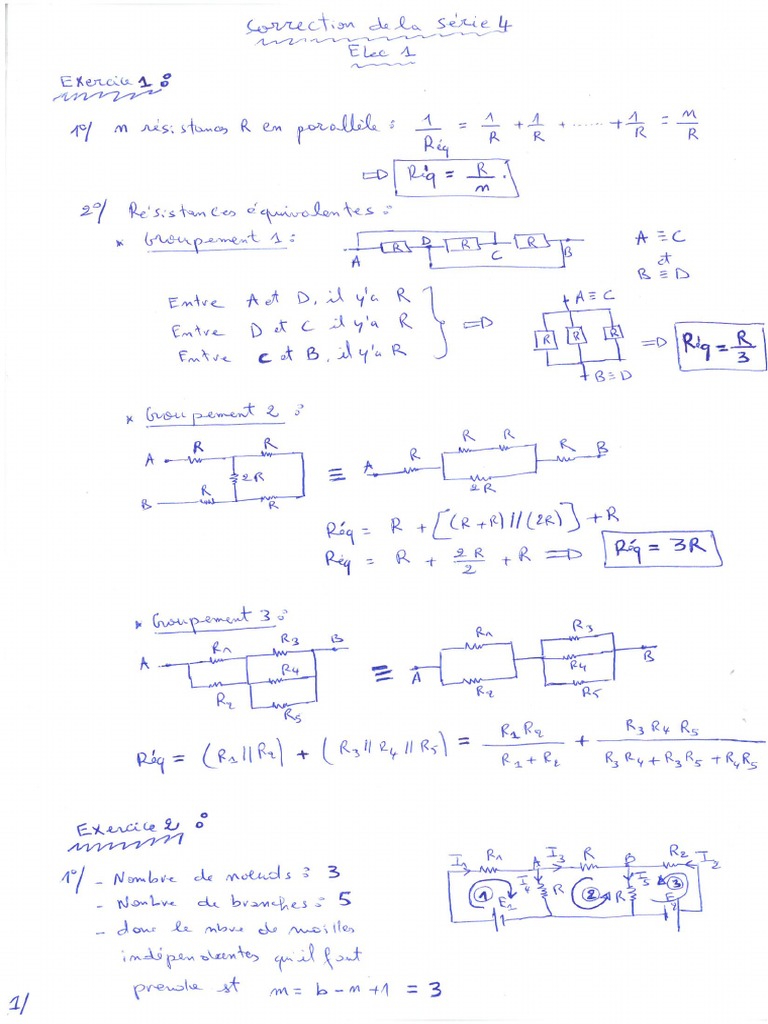 Correction de la série 4
Elec 1
Exercice 1 :
1°/ n résistances R en parallèle : 1/Réq = 1/R + 1/R + ...... + 1/R = n/R
=> Réq = R/n .
2°/ Résistances équivalentes :
* Groupement 1 :
A R D R C R B
A ≡ C
et
B ≡ D
Entre A et D, il y'a R
Entre D et C il y'a R
Entre C et B, il y'a R
=> A ≡ C
R R R
B ≡ D
=> Réq = R/3
* Groupement 2 :
A R R
2R
B R R
≡ A R R R R B
2R
Réq = R + [(R+R)//(2R)] + R
Réq = R + 2R/2 + R => Réq = 3R
* Groupement 3 :
A R1 R3 B
R2 R4
R5
≡ A R1 R3 B
R2 R4
R5
Réq = (R1//R2) + (R3//R4//R5) = R1R2/(R1+R2) + R3R4R5/(R3R4+R3R5+R4R5)
Exercice 2 :
1°/ - Nombre de noeuds : 3
- Nombre de branches : 5
- donc le nbre de mailles
indépendantes qu'il faut
prendre st m = b - n + 1 = 3
I1 R1 A I3 R B R2 I2
1 E1 I4 R 2 R I5 3 E2
1/